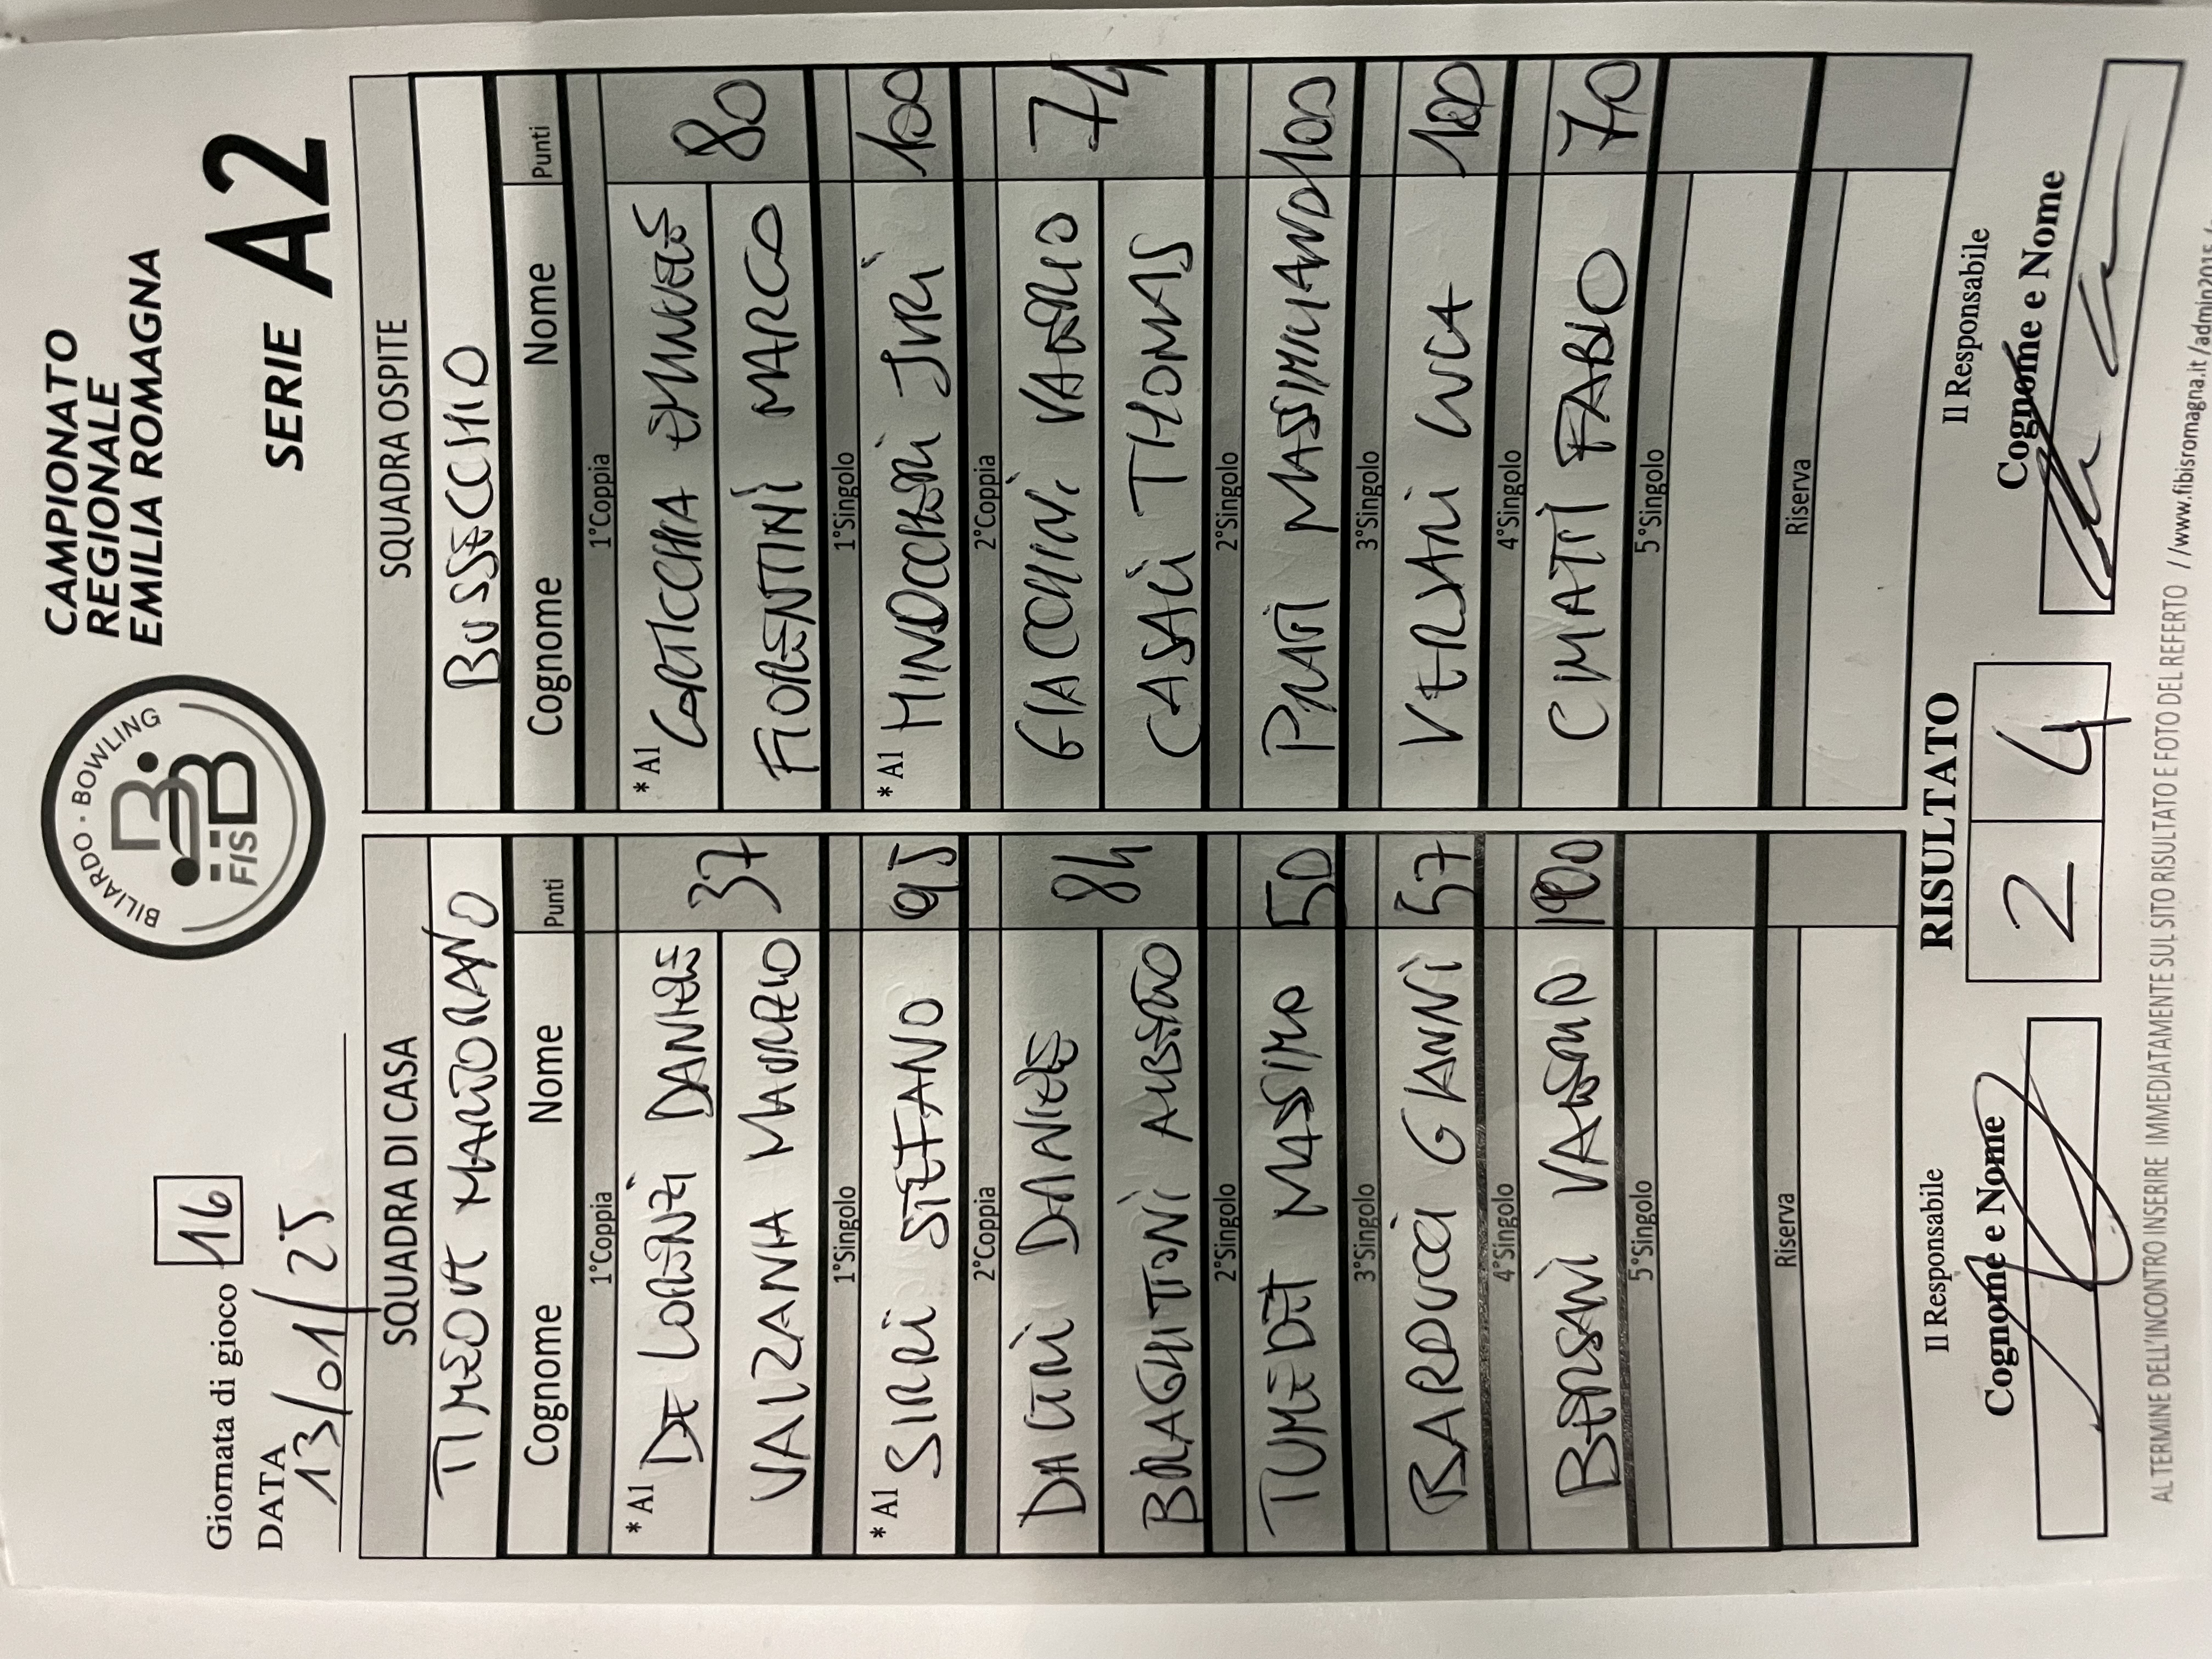 BILIARDO · BOWLING
FISBB
CAMPIONATO
REGIONALE
EMILIA ROMAGNA
Giornata di gioco 16
DATA
13/01/25
SERIE A2
SQUADRA DI CASA SQUADRA OSPITE
MARTORANO BUSSECCHIO
Cognome Nome Punti Cognome Nome Punti
1°Coppia 1°Coppia
*A1 DE LORENZI DANIELE 37 *A1 CORTICCHIA 80
VALZANIA MAURIZIO FIORENTINI MARCO
1°Singolo 1°Singolo
*A1 SIRRI STEFANO 95 *A1 MINOCCHERI JURI 100
2°Coppia 2°Coppia
DANIELE 84 GIACCHINI VALERIO 74
BRAGHITTONI ALBERTO CASALI THOMAS
2°Singolo 2°Singolo
TUMEDEI MASSIMO 50 PRATI MASSIMILIANO 100
3°Singolo 3°Singolo
BARDUCCI GIANNI 57 VERSARI LUCA 100
4°Singolo 4°Singolo
BERSANI VALERIO 100 CIMATTI FABIO 70
5°Singolo 5°Singolo
Riserva Riserva
Il Responsabile RISULTATO Il Responsabile
Cognome e Nome 2 4 Cognome e Nome
AL TERMINE DELL'INCONTRO INSERIRE IMMEDIATAMENTE SUL SITO RISULTATO E FOTO DEL REFERTO //www.fibisromagna.it/admin2015/